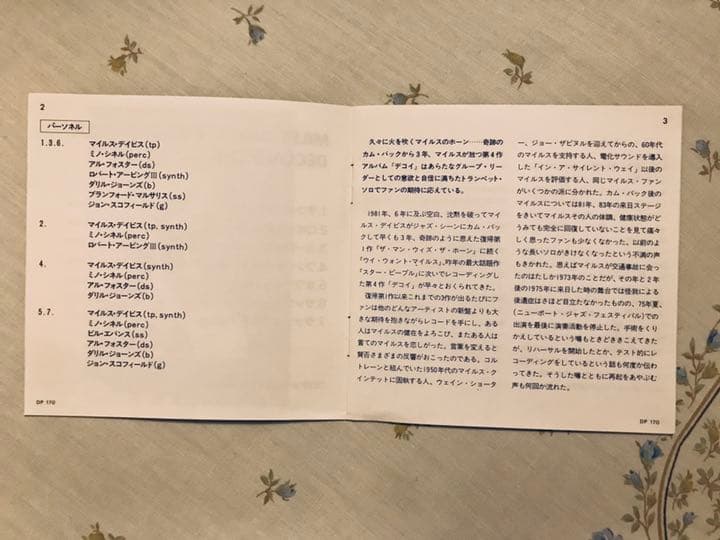 2
パーソネル
1.3.6. マイルス・デイビス(tp)
ミノ・シネル(perc)
アル・フォスター(ds)
ロバート・アービングIII(synth)
ダリル・ジョーンズ(b)
ブランフォード・マルサリス(ss)
ジョン・スコフィールド(g)
2. マイルス・デイビス(tp, synth)
ミノ・シネル(perc)
ロバート・アービングIII(synth)
4. マイルス・デイビス(synth)
ミノ・シネル(perc)
アル・フォスター(ds)
ダリル・ジョーンズ(b)
5.7. マイルス・デイビス(tp, synth)
ミノ・シネル(perc)
ビル・エバンス(ss)
アル・フォスター(ds)
ダリル・ジョーンズ(b)
ジョン・スコフィールド(g)
DP 170
3
久々に火を吹くマイルスのホーン……奇跡の
カム・バックから3年、マイルスが放つ第4作
アルバム「デコイ」はあらたなグループ・リー
ダーとしての意欲と自信に満ちたトランペット・
ソロでファンの期待に応えている。
1981年、6年に及ぶ空白、沈黙を破ってマイ
ルス・デイビスがジャズ・シーンにカム・バッ
クして早くも3年、奇跡のように思えた復帰第
1作「ザ・マン・ウィズ・ザ・ホーン」に続く
「ウイ・ウォント・マイルス」、昨年の最大話題作
「スター・ピープル」に次いでレコーディングし
た第4作「デコイ」が早々とおくられてきた。
復帰第1作以来これまでの3作が出るたびにフ
ァンは他のどんなアーティストの新盤よりも大
きな期待を抱きながらレコードを手にし、ある
人はマイルスの健在をよろこび、またある人は
昔てのマイルスを恋しがった。言葉を変えると
賛否さまざまの反響がおこったのである。コル
トレーンと組んでいた1950年代のマイルス・ク
インテットに固執する人、ウェイン・ショータ
ー、ジョー・ザビヌルを迎えてからの、60年代
のマイルスを支持する人、電化サウンドを導入
した「イン・ア・サイレント・ウェイ」以後の
マイルスを評価する人、同じマイルス・ファン
がいくつかの派に分かれた。カム・バック後の
マイルスについては81年、83年の来日ステージ
をきいてマイルスその人の体調、健康状態がど
うみても完全に回復していないことを見て痛々
しく思ったファンも少なくなかった。以前のよう
な長いソロがきけなくなったという不満の声
もきかれた。思えばマイルスが交通事故に会っ
たのはたしか1973年のことだが、その年と2年
後の1975年に来日した時の舞台では怪我による
後遺症はさほど目立たなかったものの、75年夏、
〈ニューポート・ジャズ・フェスティバル〉での
出演を最後に演奏活動を停止した。手術をくり
かえしているという噂もときどききこえてきた
が、リハーサルを開始したとか、テスト的にレ
コーディングをしているという話も何度か伝わ
ってきた。そうした噂とともに再起をあやぶむ
声も何回か流れた。
DP 170